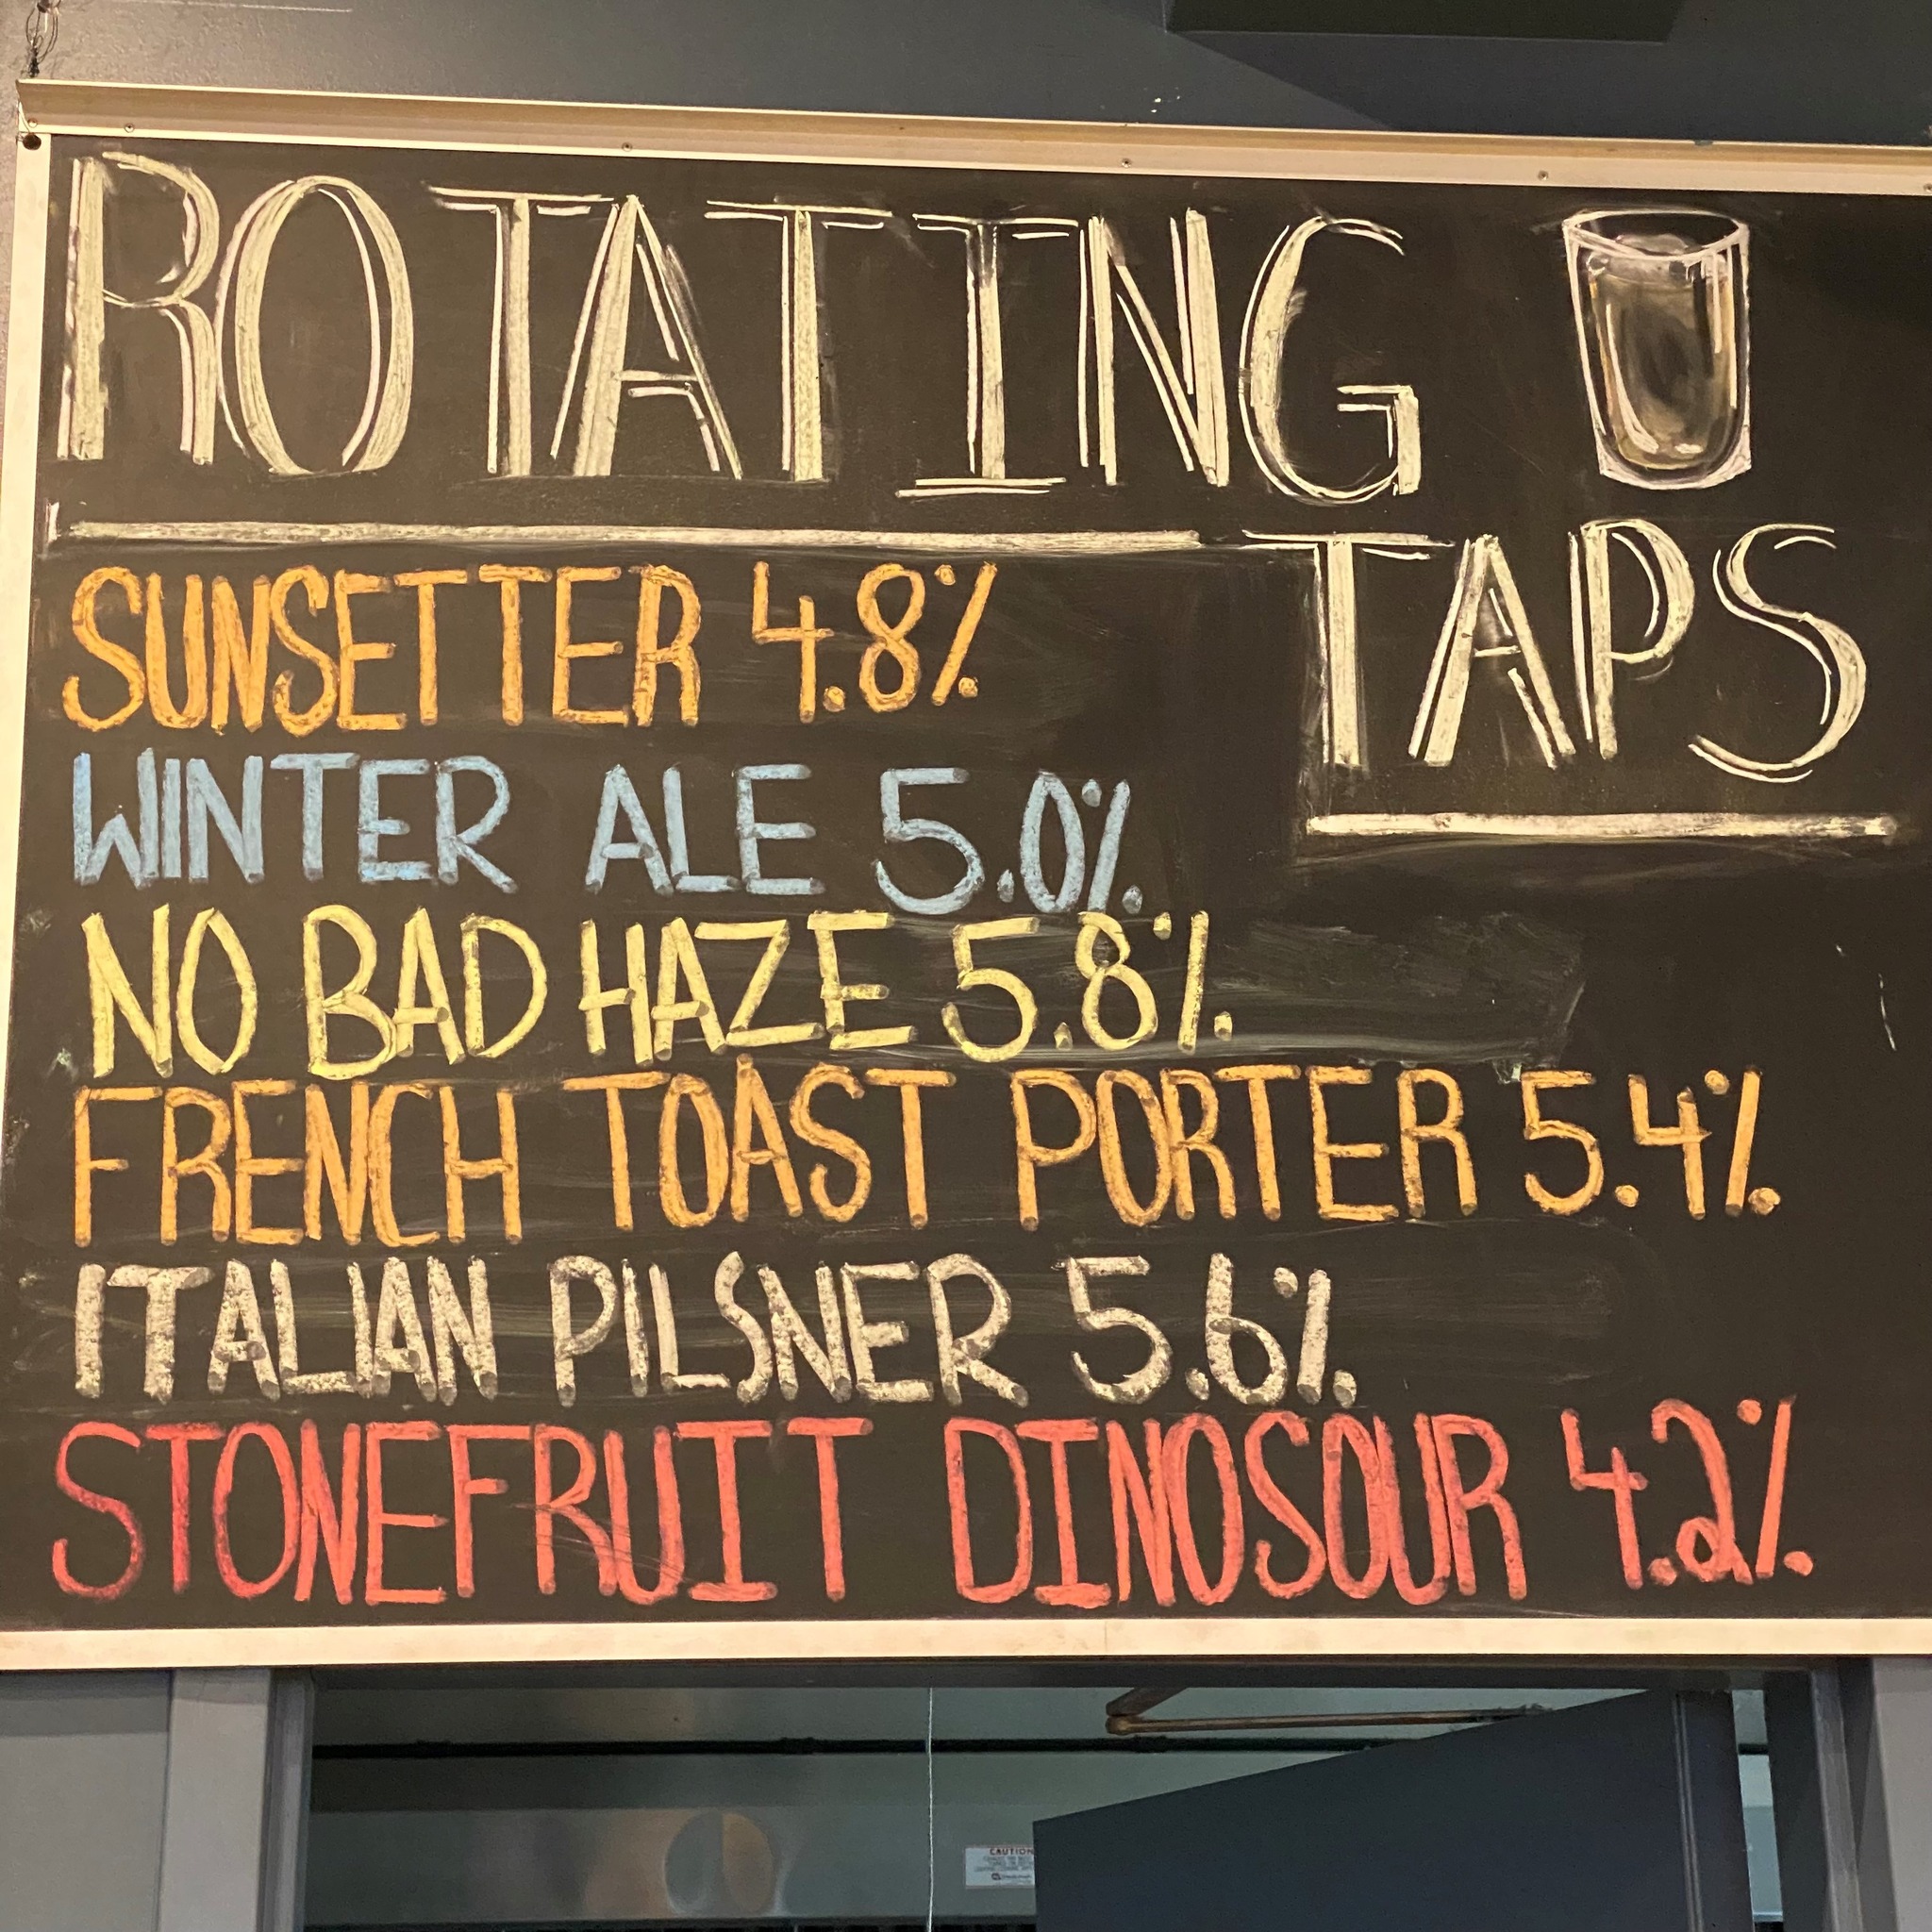 ROTATING
TAPS
SUNSETTER 4.8%
WINTER ALE 5.0%
NO BAD HAZE 5.8%
FRENCH TOAST PORTER 5.4%
ITALIAN PILSNER 5.6%
STONEFRUIT DINOSOUR 4.2%
CAUTION